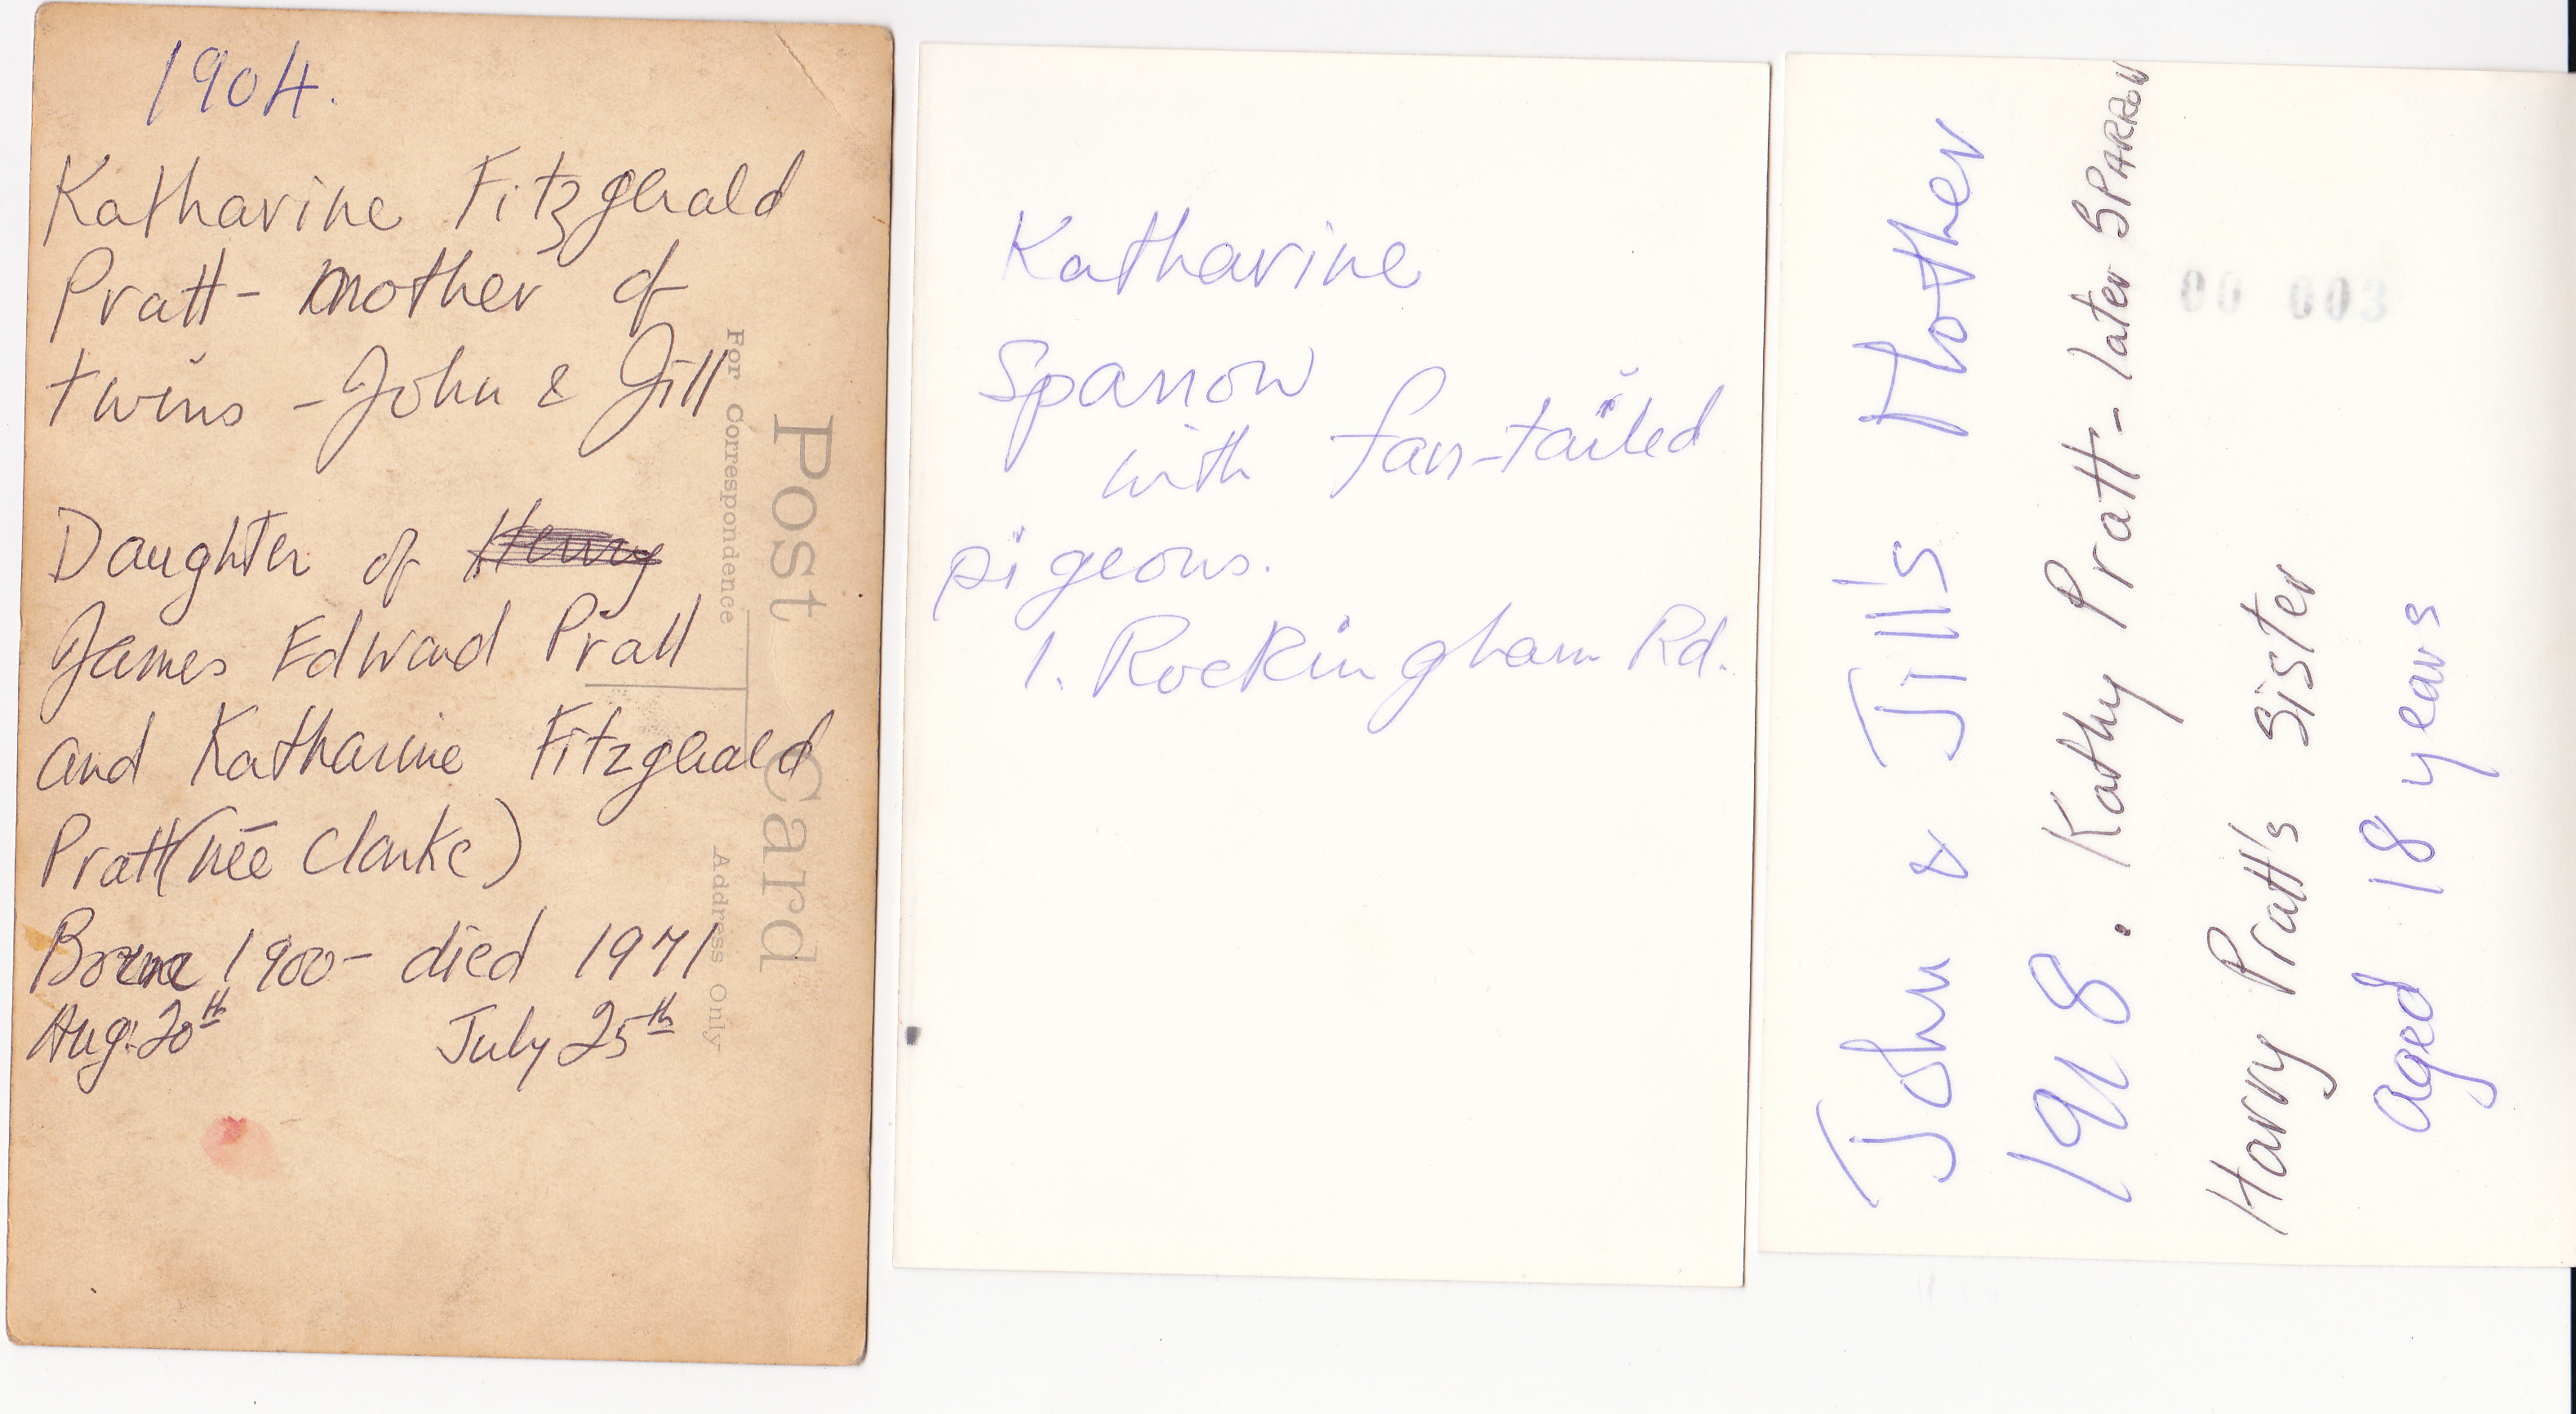 1904.
Katharine Fitzgerald
Pratt - mother of
twins - John & Jill
Daughter of Henry
James Edward Pratt
and Katharine Fitzgerald
Pratt (née Clarke)
Born 1900 - died 1971
Aug. 20th July 25th
For Correspondence
Post Card
Address Only
Katharine
Sparrow
with fan-tailed
pigeons.
1. Rockingham Rd.
John & Jill's Mother
1918. Kathy Pratt - later SPARROW
Harry Pratt's Sister
aged 18 years
00 003